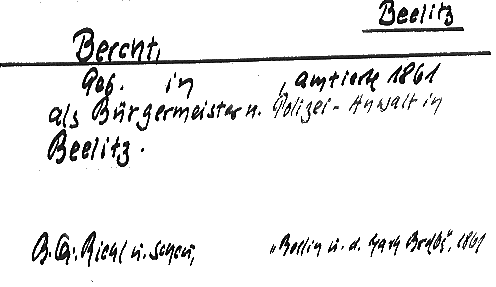 Beelitz
Bercht,
Geb. in , amtierte 1861
als Bürgermeister u. Polizei-Anwalt in
Beelitz.
B.Q.: Riehl u. Scheu, "Berlin u. d. Mark Brdbg", 1861